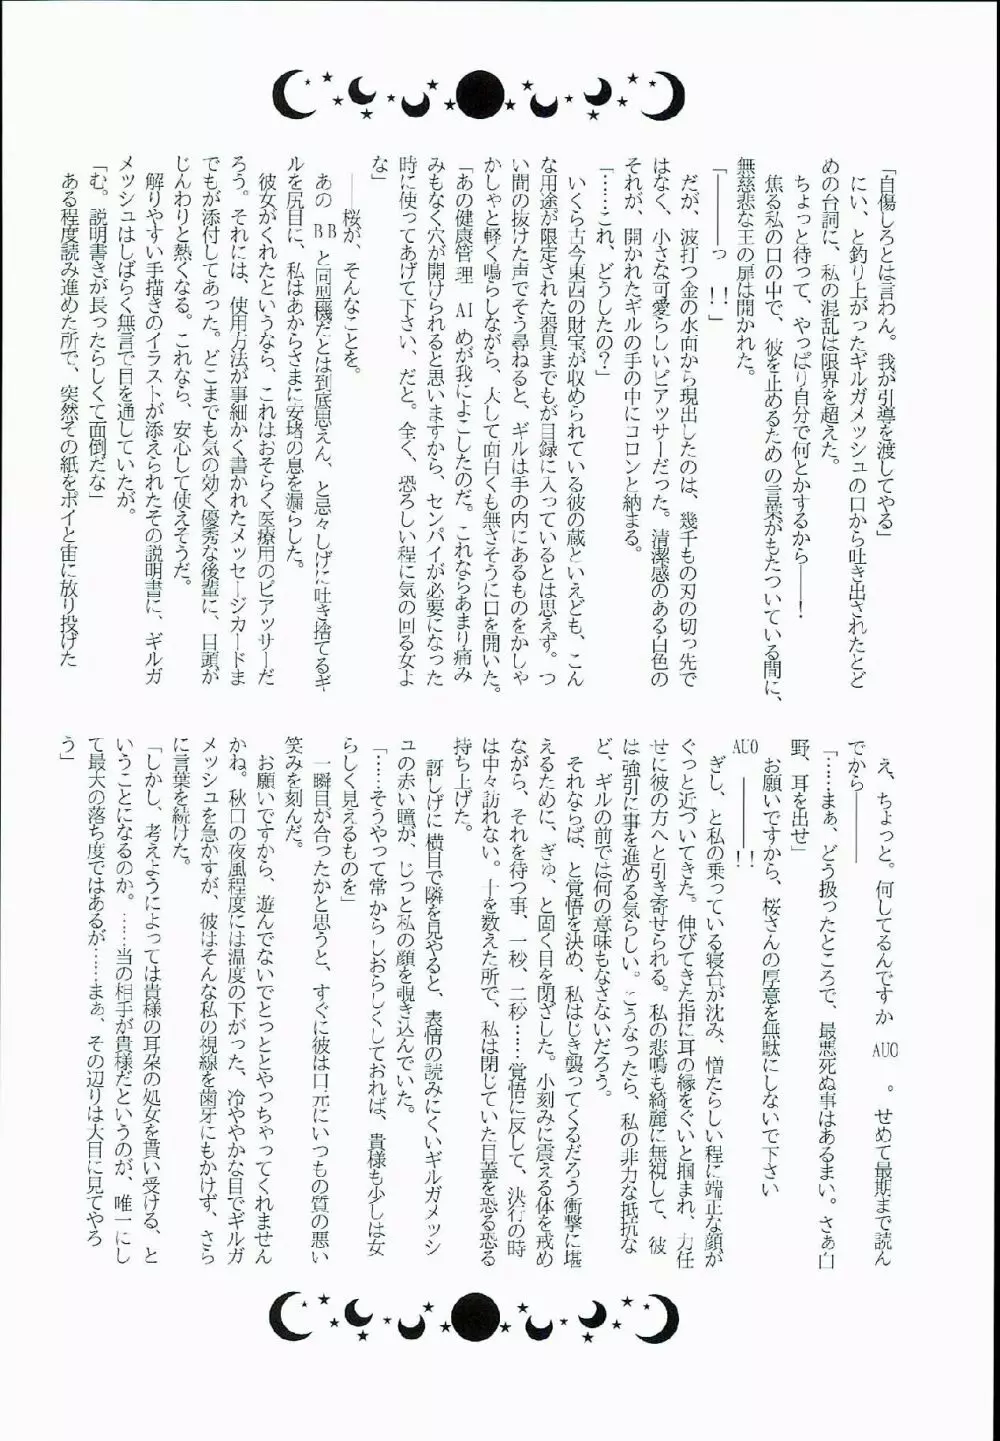 「自傷しろとは言わん。我が引導を渡してやる」
　にい、と釣り上がったギルガメッシュの口から吐き出されたとど
めの台詞に、私の混乱は限界を超えた。
　ちょっと待って、やっぱり自分で何とかするから――！
　焦る私の口の中で、彼を止めるための言葉がもたついている間に、
無慈悲な王の扉は開かれた。
「―――っ　!!」
　だが、波打つ金の水面から現出したのは、幾千もの刃の切っ先で
はなく、小さな可愛らしいピアッサーだった。清潔感のある白色の
それが、開かれたギルの手の中にコロンと納まる。
「……これ、どうしたの？」
　いくら古今東西の財宝が収められている彼の蔵といえども、こん
な用途が限定された器具までもが目録に入っているとは思えず。つ
い間の抜けた声でそう尋ねると、ギルは手の内にあるものをかしゃ
かしゃと軽く鳴らしながら、大して面白くも無さそうに口を開いた。
「あの健康管理 AI めが我によこしたのだ。これならあまり痛み
みもなく穴が開けられると思いますから、センパイが必要になった
時に使ってあげて下さい、だと。全く、恐ろしい程に気の回る女よ
な」
　――桜が、そんなことを。
　あの BB と同型機だとは到底思えん、と忌々しげに吐き捨てるギ
ルを尻目に、私はあからさまに安堵の息を漏らした。
　彼女がくれたというなら、これはおそらく医療用のピアッサーだ
ろう。それには、使用方法が事細かく書かれたメッセージカードま
でもが添付してあった。どこまでも気の効く優秀な後輩に、目頭が
じんわりと熱くなる。これなら、安心して使えそうだ。
　解りやすい手描きのイラストが添えられたその説明書に、ギルガ
メッシュはしばらく無言で目を通していたが。
「む。説明書きが長ったらしくて面倒だな」
　ある程度読み進めた所で、突然その紙をポイと宙に放り投げた
　え、ちょっと。何してるんですか AUO 。せめて最期まで読ん
でから―――
「……まぁ、どう扱ったところで、最悪死ぬ事はあるまい。さぁ白
野、耳を出せ」
　お願いですから、桜さんの厚意を無駄にしないで下さい
AUO ―――!!
　ぎし、と私の乗っている寝台が沈み、憎たらしい程に端正な顔が
ぐっと近づいてきた。伸びてきた指に耳の縁をぐいと掴まれ、力任
せに彼の方へと引き寄せられる。私の悲鳴も綺麗に無視して、彼
は強引に事を進める気らしい。こうなったら、私の非力な抵抗な
ど、ギルの前では何の意味もなさないだろう。
　それならば、と覚悟を決め、私はじき襲ってくるだろう衝撃に堪
えるために、ぎゅ、と固く目を閉ざした。小刻みに震える体を戒め
ながら、それを待つ事、一秒、二秒……覚悟に反して、決行の時
は中々訪れない。十を数えた所で、私は閉じていた目蓋を恐る恐る
持ち上げた。
　訝しげに横目で隣を見やると、表情の読みにくいギルガメッシ
ュの赤い瞳が、じっと私の顔を覗き込んでいた。
「……そうやって常からしおらしくしておれば、貴様も少しは女
らしく見えるものを」
　一瞬目が合ったかと思うと、すぐに彼は口元にいつもの質の悪い
笑みを刻んだ。
　お願いですから、遊んでないでとっととやっちゃってくれません
かね。秋口の夜風程度には温度の下がった、冷ややかな目でギルガ
メッシュを急かすが、彼はそんな私の視線を歯牙にもかけず、さら
に言葉を続けた。
「しかし、考えようによっては貴様の耳朶の処女を貰い受ける、と
いうことになるのか。……当の相手が貴様だというのが、唯一にし
て最大の落ち度ではあるが……まぁ、その辺りは大目に見てやろ
う」